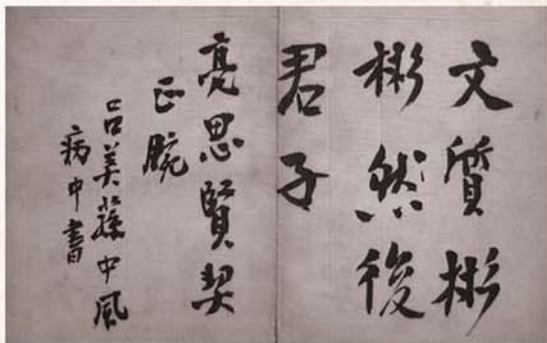 文質彬
彬然後
君子
亮思賢契
正腕
呂美蓀中風
病中書